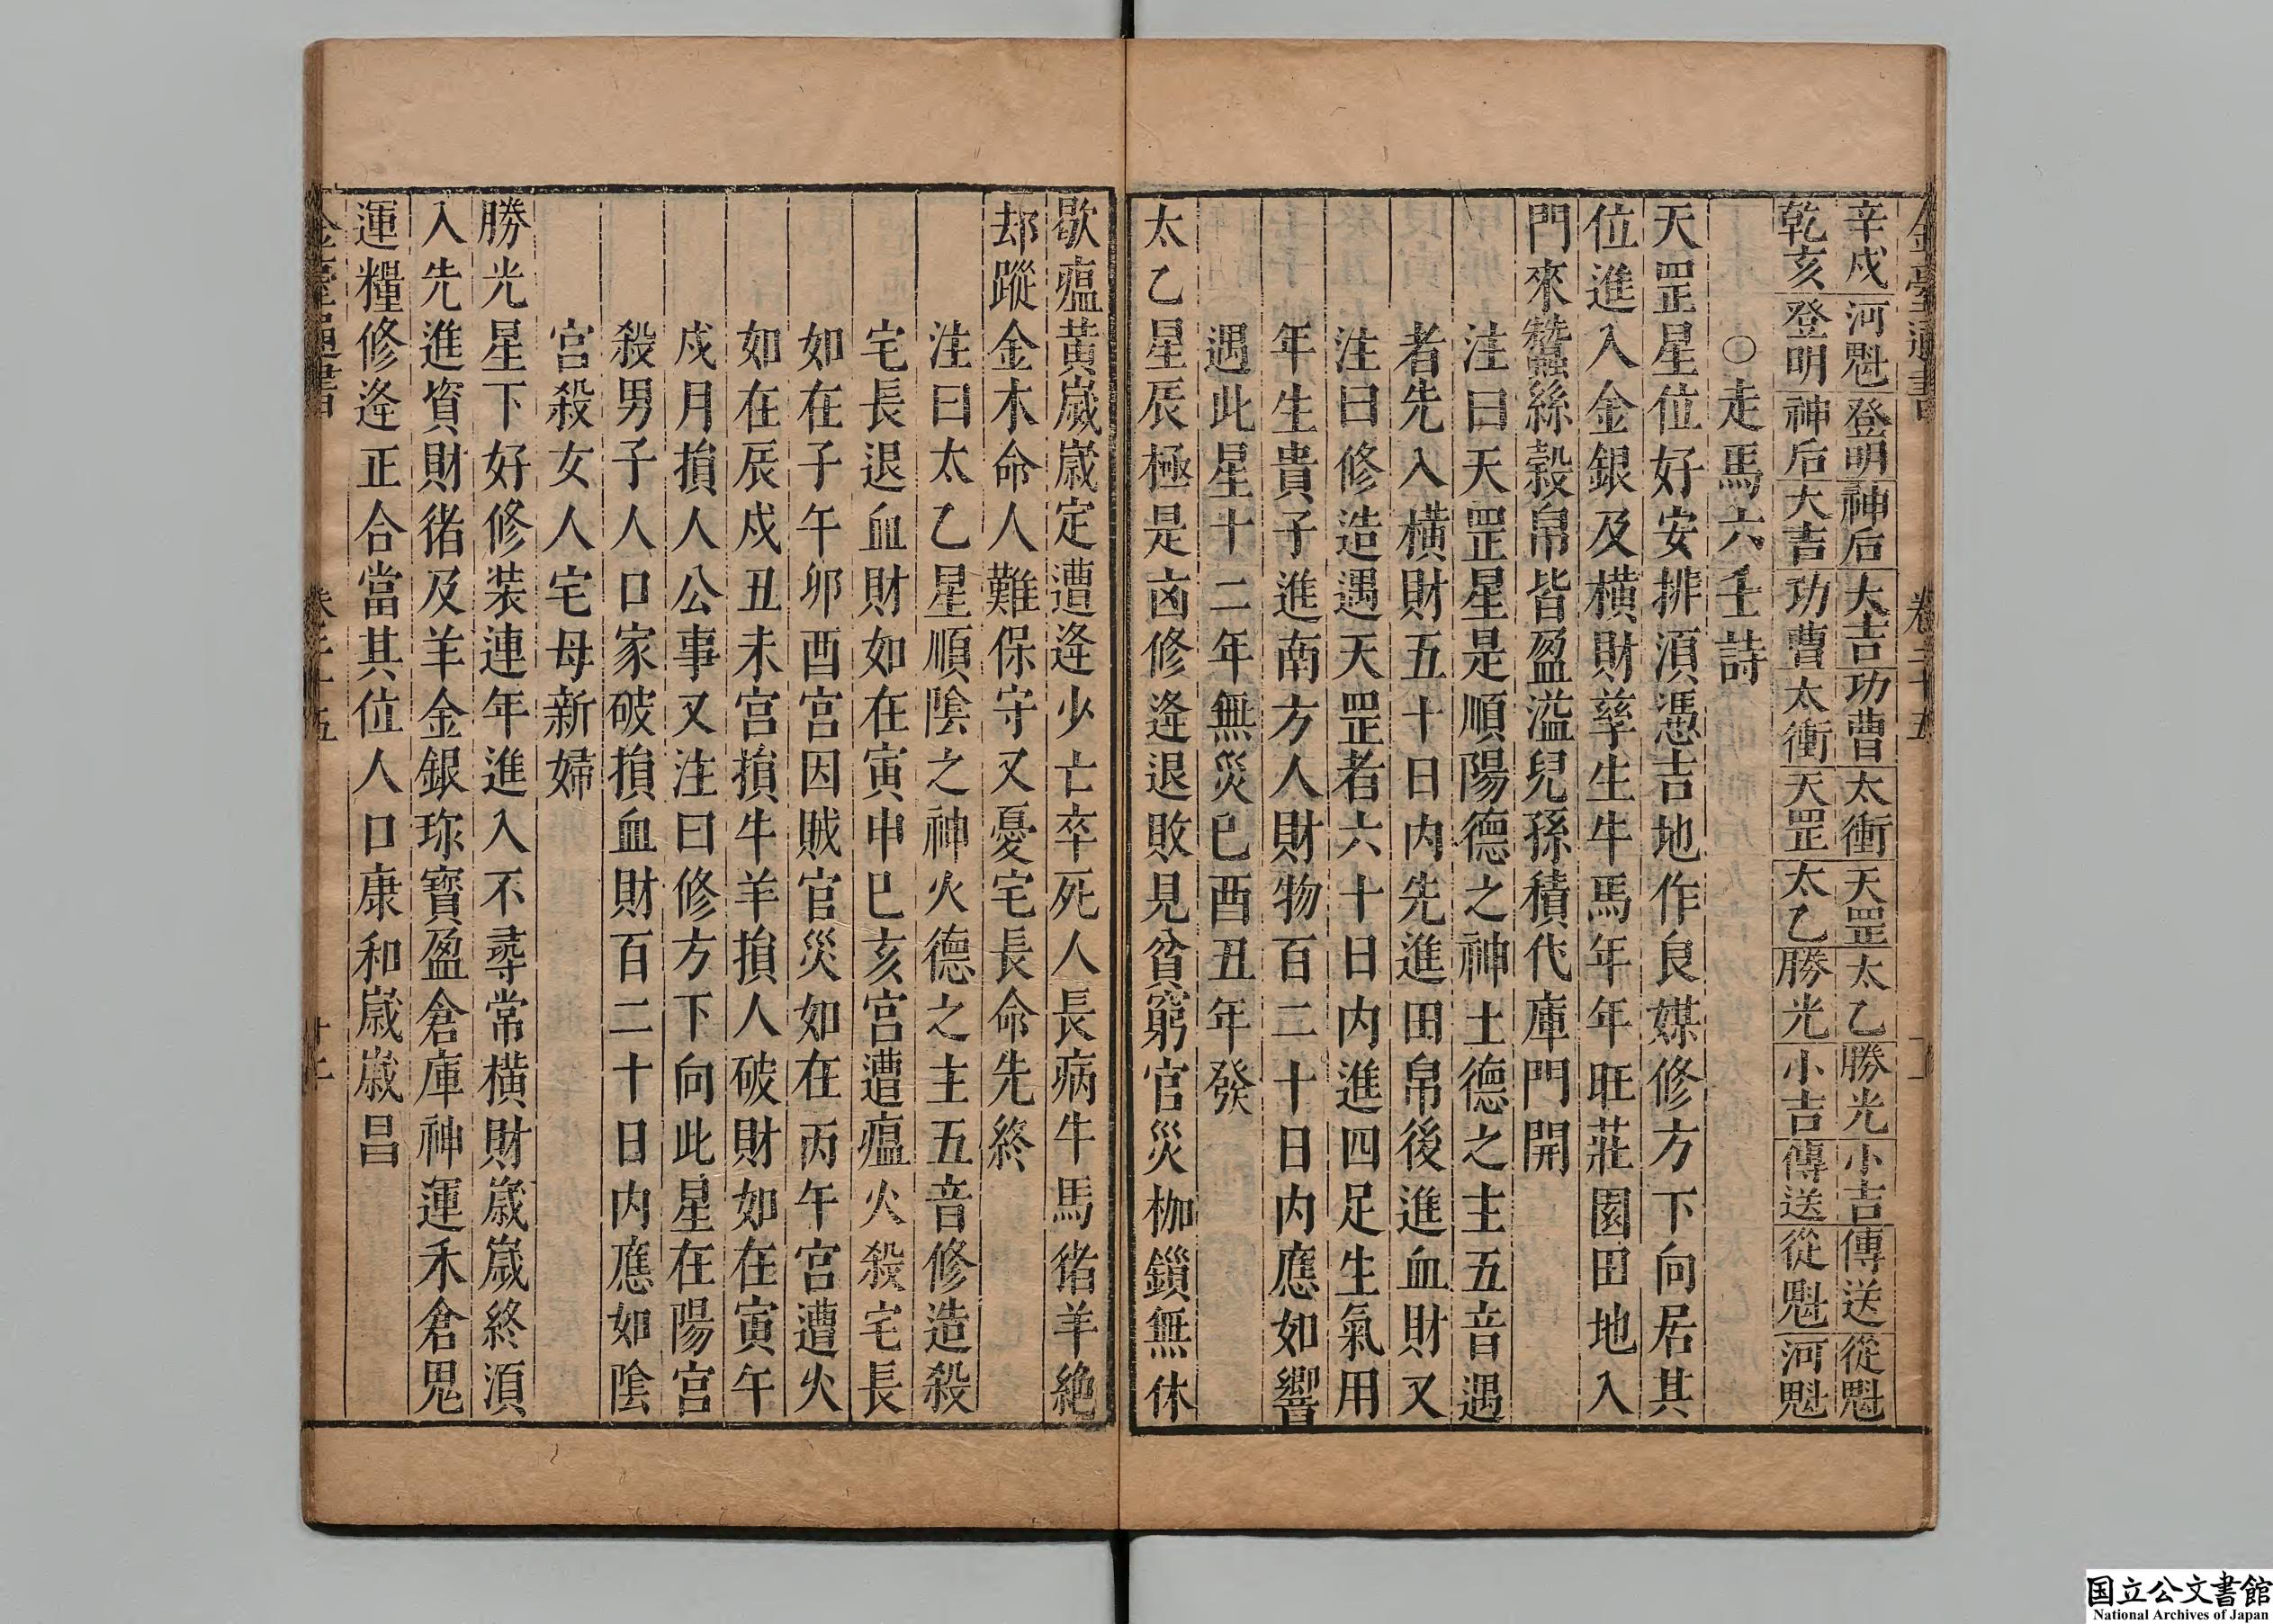 金臺通書 卷二十五
辛戍 河魁 登明 神后 大吉 功曹 太衝 天罡 太乙 勝光 小吉 傳送 從魁
乾亥 登明 神后 大吉 功曹 太衝 天罡 太乙 勝光 小吉 傳送 從魁 河魁
○走馬六壬詩
天罡星位好安排須憑吉地作良媒修方下向居其
位進入金銀及橫財孳生牛馬年年旺莊園田地入
門來蠶絲穀帛皆盈溢兒孫積代庫門開
注曰天罡星是順陽德之神土德之主五音遇
者先入橫財五十日内先進田帛後進血財又
注曰修造遇天罡者六十日内進四足生氣用
年生貴子進南方人財物百二十日内應如響
遇此星十二年無災巳酉丑年發
太乙星辰極是凶修逄退敗見貧窮官災枷鎖無休
歇瘟黃歲歲定遭逄少亡卒死人長病牛馬猪羊絶
却蹤金木命人難保守又憂宅長命先終
注曰太乙星順陰之神火德之主五音修造殺
宅長退血財如在寅申巳亥宮遭瘟火殺宅長
如在子午卯酉宮因賊官災如在丙午宮遭火
如在辰戍丑未宮損牛羊損人破財如在寅午
戍月損人公事又注曰修方下向此星在陽宮
殺男子人口家破損血財百二十日内應如陰
宮殺女人宅母新婦
勝光星下好修装連年進入不尋常橫財歲歲終須
入先進資財猪及羊金銀珎寳盈倉庫神運禾倉鬼
運糧修逄正合當其位人口康和歲歲昌
金臺通書 卷二十五
国立公文書館
National Archives of Japan